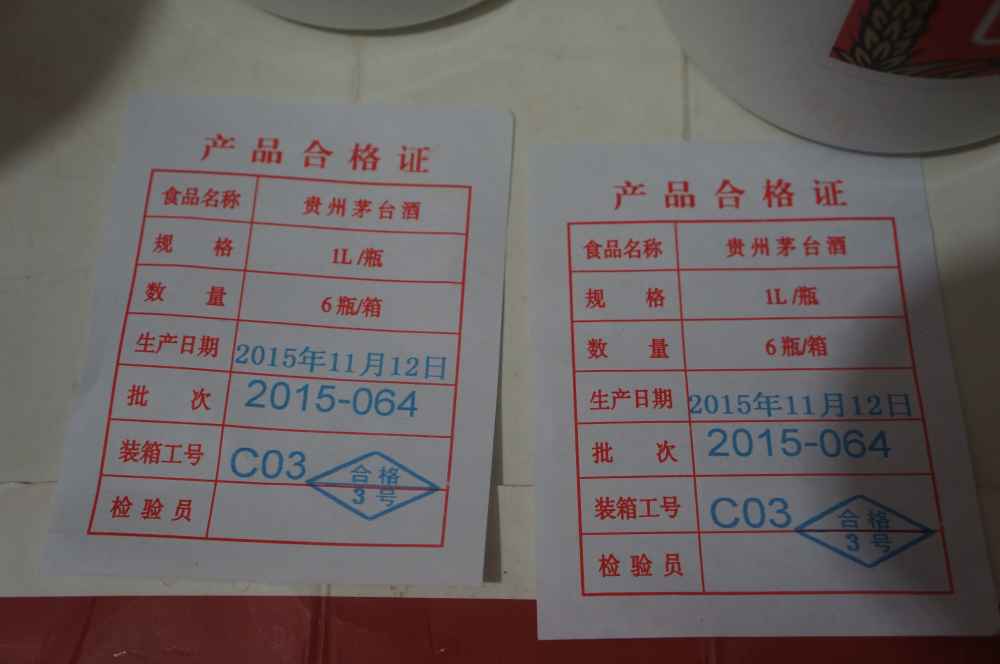 产品合格证
食品名称 贵州茅台酒
规格 1L/瓶
数量 6瓶/箱
生产日期 2015年11月12日
批次 2015-064
装箱工号 C03
合格
3号
检验员
产品合格证
食品名称 贵州茅台酒
规格 1L/瓶
数量 6瓶/箱
生产日期 2015年11月12日
批次 2015-064
装箱工号 C03
合格
3号
检验员